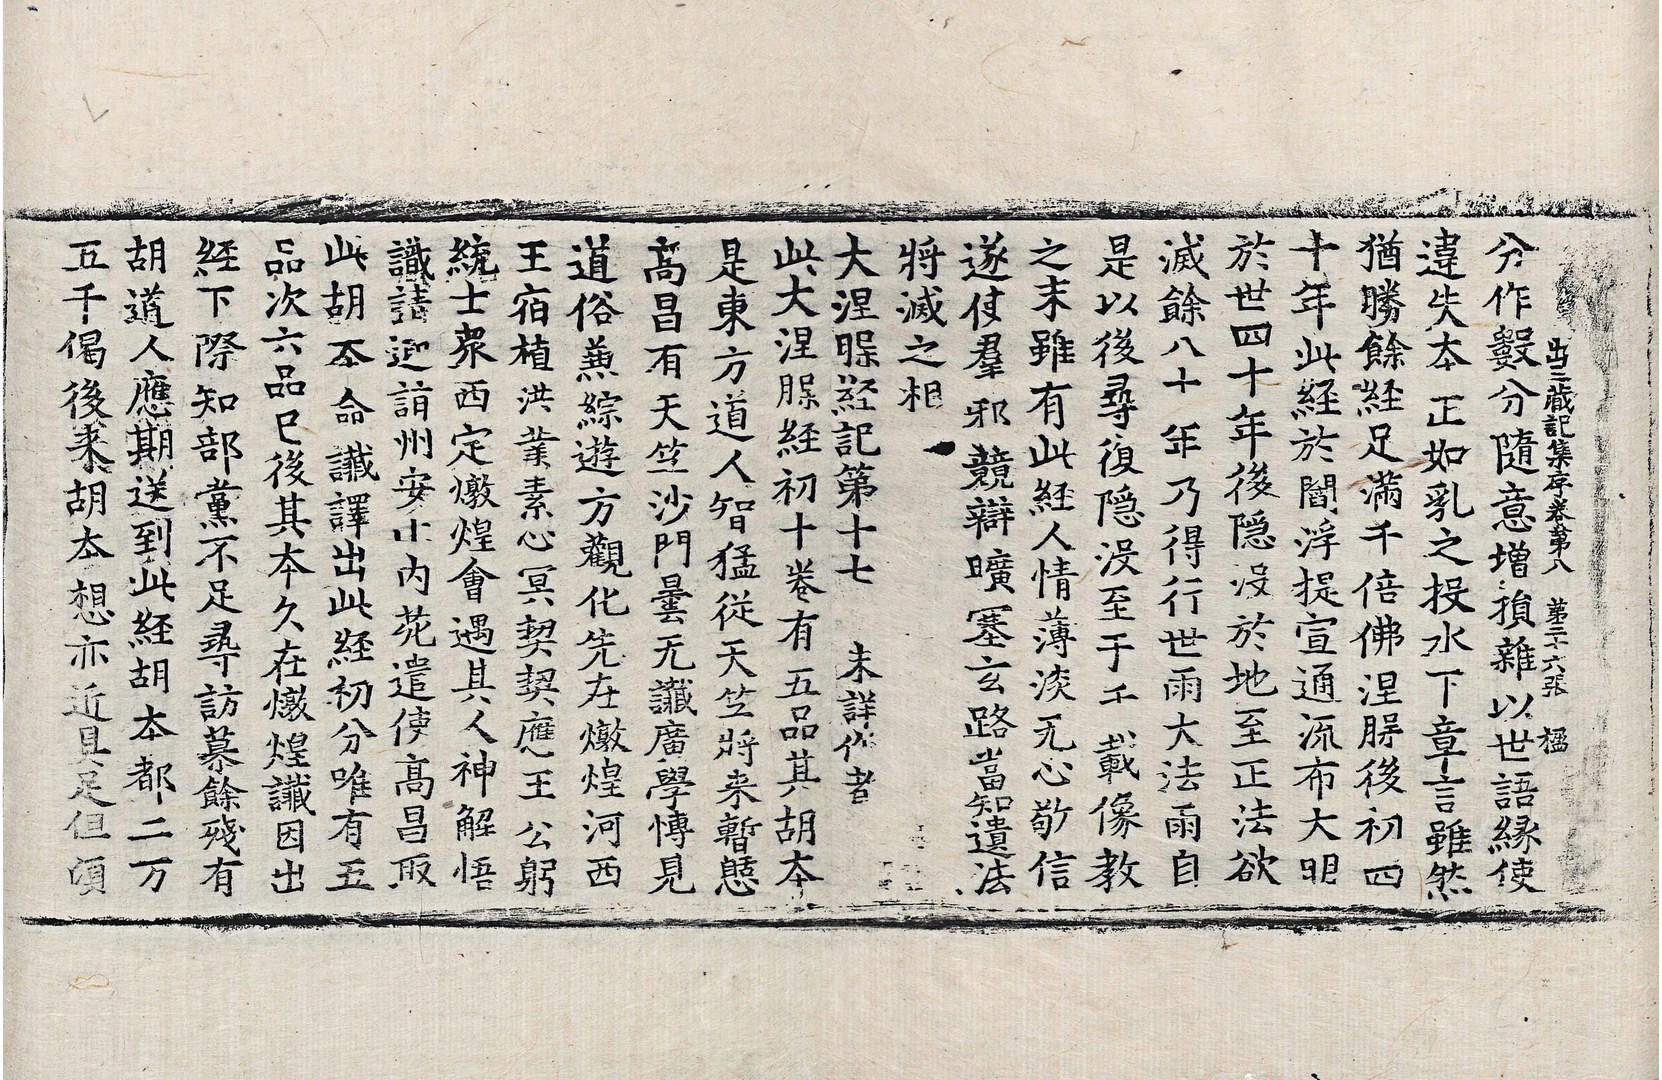 出三藏記集序卷第八 第三十六張 楹
分作數分隨意增損雜以世語緣使
違失本正如乳之投水下章言雖然
猶勝餘經足滿千倍佛涅脵後初四
十年此經於閻浮提宣通流布大明
於世四十年後隱没於地至正法欲
滅餘八十年乃得行世雨大法雨自
是以後尋復隱没至于千載像教
之末雖有此經人情薄淡无心敬信
遂使羣邪競辯曠塞玄路當知遺法
將滅之相
大涅脵經記第十七 未詳作者
此大涅脵經初十卷有五品其胡本
是東方道人智猛從天竺將来暫憩
高昌有天竺沙門曇无讖廣學愽見
道俗兼綜遊方觀化先在燉煌河西
王宿植洪業素心冥契契應王公躬
統士衆西定燉煌會遇其人神解悟
識請迎詣州安止内苑遣使高昌取
此胡本命讖譯出此經初分唯有五
品次六品已後其本久在燉煌讖因出
經下際知部黨不足尋訪慕餘殘有
胡道人應期送到此經胡本都二万
五千偈後来胡本想亦近具足但頃